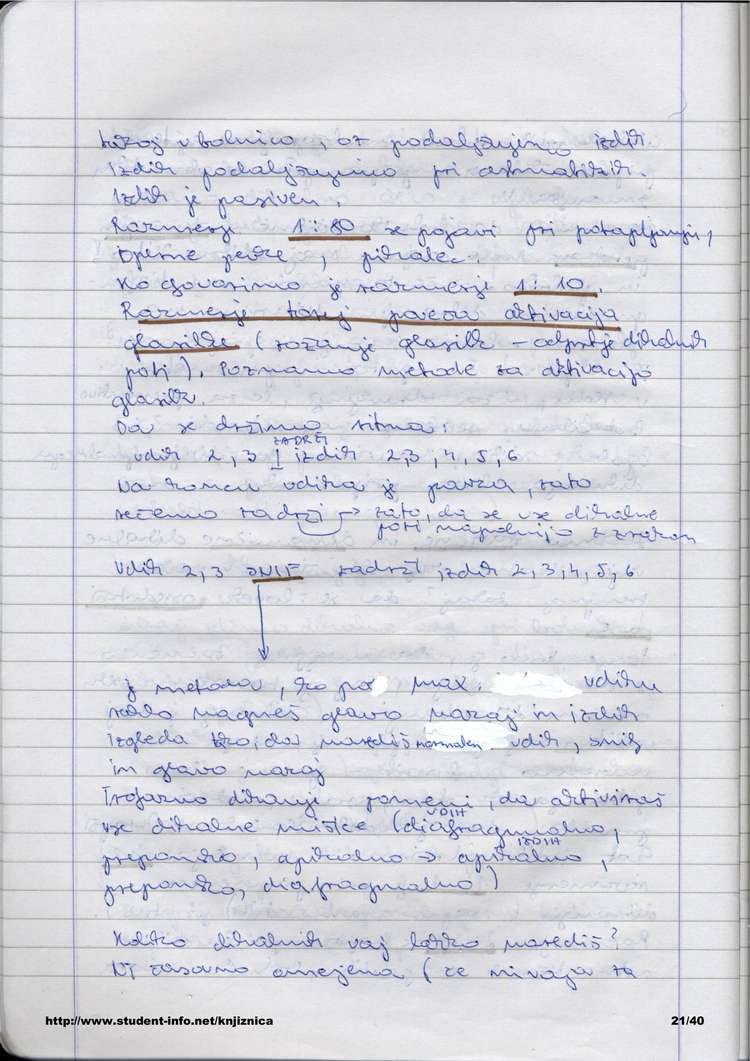 takoj v bolnico, oz podaljšujemo izdih
Izdih podaljšujemo pri astmatikih.
Izdih je pasiven.
Razmerje 1:80 se pojavi pri potapljanju,
operne pevke,
Ko govorimo je razmerje 1:10.
Razmerje torej poveča aktivacija
glasilke (zožanje glasilk – dihalnih
poti). Poznamo metode za aktivacijo
glasilk.
Da se držimo ritma:
ZADRŽI
vdih 2, 3 1 izdih 2,3,4,5,6
Na koncu vdiha je pavza, zato
rečemo zadrži → zato, da se vse dihalne
poti napolnijo z zrakom
Vdih 2,3 SNIF zadrži izdih 2,3,4,5,6
je metoda, ko po max. vdihu
nagneš glavo nazaj in izdih
izgleda tko, da narediš normalen vdih, snif
in glavo nazaj
Trofazno dihanje pomeni, da aktiviraš
VDIH
vse dihalne mišice (diafragmalno,
IZDIH
preponsko, apikalno → apikalno,
preponsko, diafragmalno)
Koliko dihalnih vaj lahko narediš?
Ni časovno omejena (se nivaja za
http://www.student-info.net/knjiznica
21/40